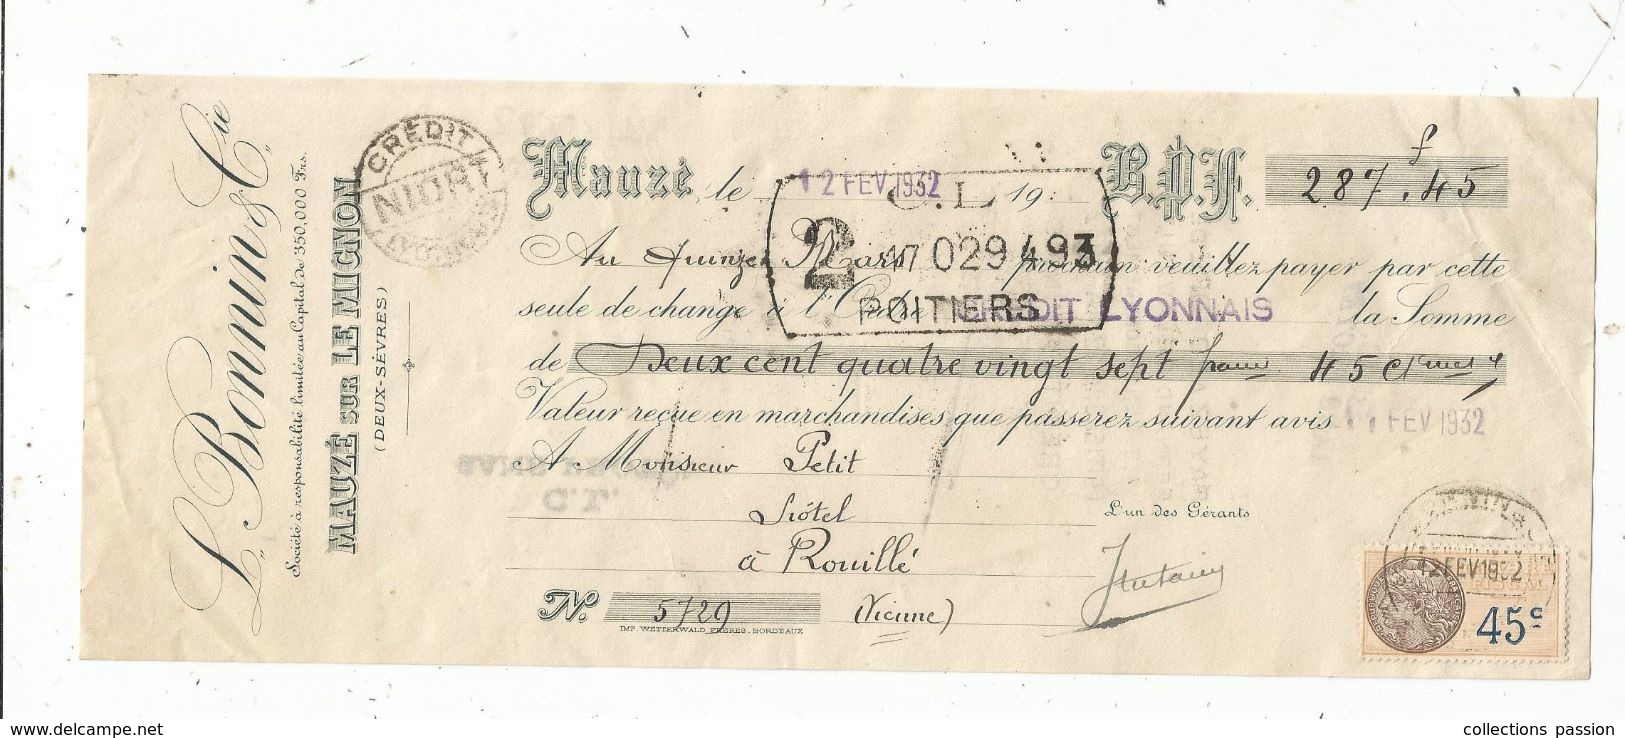 L. Bonnin & Cie
Société à responsabilité limitée au Capital de 350,000 Frs.
MAUZÉ SUR LE MIGNON
(DEUX-SÈVRES)
CRÉDIT
NIORT
LYONNAIS
Mauzé, le 12 FEV 1932 19 B.P.F. 287f.45
C.L
2 17 029 493
POITIERS
Au quinze Mars prochain veuillez payer par cette
seule de change à l'Ordre CRÉDIT LYONNAIS la Somme
de Deux cent quatre vingt sept francs 45 c
Valeur reçue en marchandises que passerez suivant avis
FEV 1932
A Monsieur Petit
C.L.
Hôtel L'un des Gérants
à Rouillé
12 FEV 1932
45c
No. 5729 (Vienne)
IMP. WETTERWALD FRÈRES. BORDEAUX
collections passion
www.delcampe.net